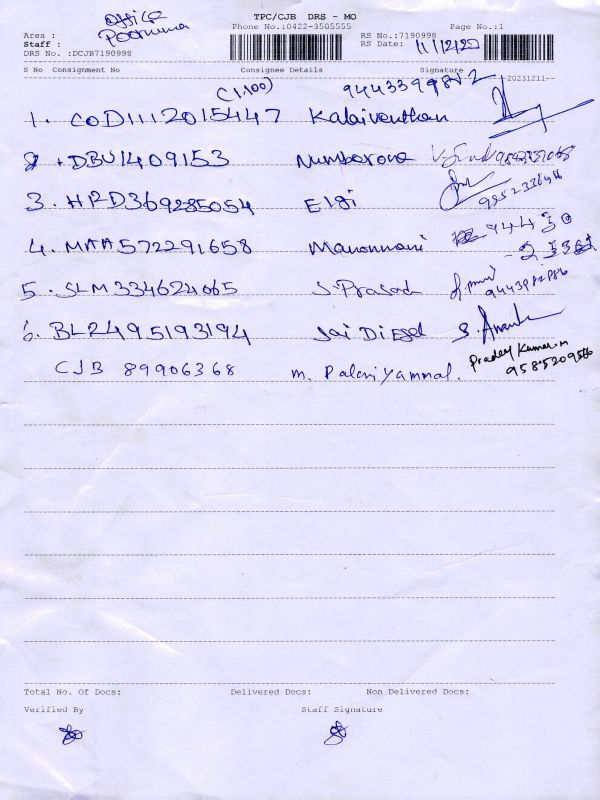 TPC/CJB DRS - MO
Office
Phone No.:0422-3505555 Page No.:1
Area : Poornima RS No.:7190998
Staff : RS Date: 11/12/23
DRS No. :DCJB7190998
S No Consignment No Consignee Details Signature
--20231211--
(1100) 9443399852
1. COD1112015447 Kalaivanthan
2. DBU1409153 Numberone
3. HRD369285054 Elgi 9852338456
4. MAA572291658 Manonmani 94430
5. SLM334624665 S. Prasad
6. BL2495193194 Jai Diesel S. Ananth
CJB 89906368 m. Palaniyammal. Pradeep Kumar.m
9585209566
Total No. Of Docs: Delivered Docs: Non Delivered Docs:
Verified By Staff Signature